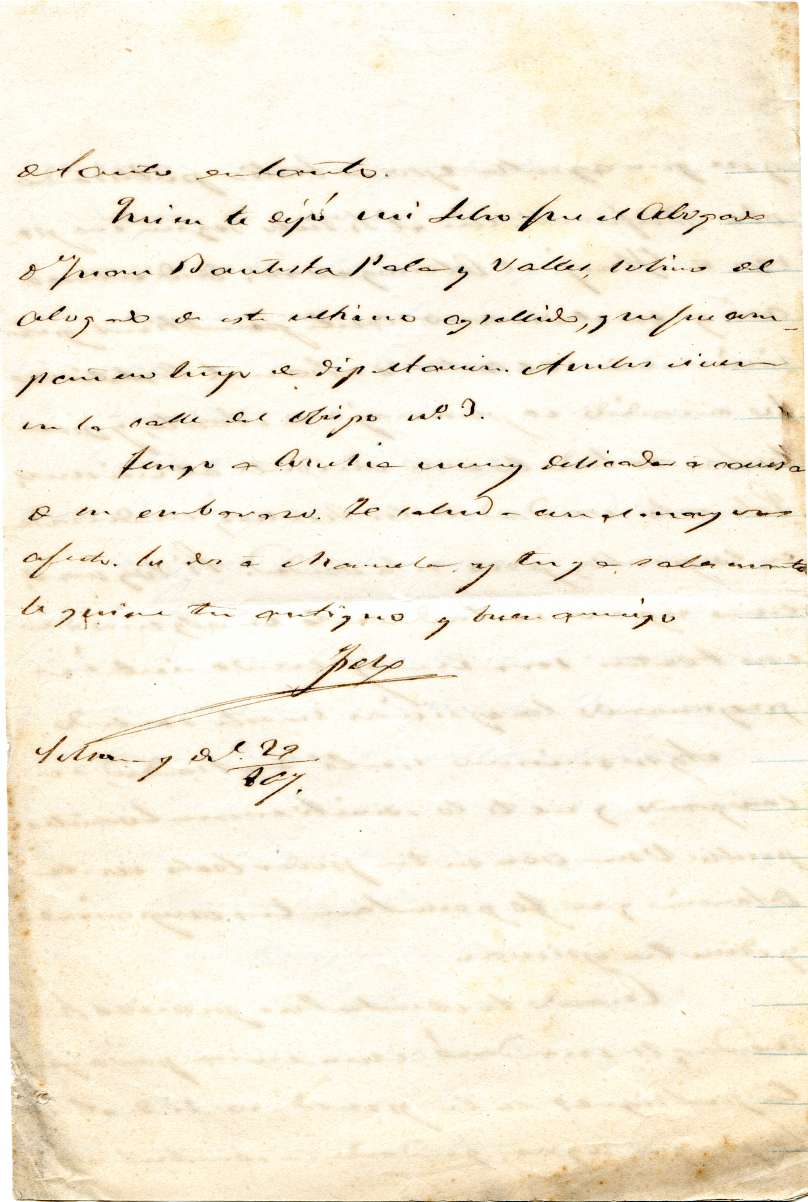 de tanto en tanto.
Quien te dejó mi libro fue el Abogado
Dn Juan Bautista Pala y Valles, sobrino del
abogado de este ultimo apellido, y que fue com-
pañero tuyo de diputacion. Ambos viven
en la calle del Obispo nº 3.
Tengo a Amelia muy delicada a causa
de su embarazo. Te saluda con el mayor
afecto. lo dos a Manuela, y tu ya sabes cuanto
te quiere tu antiguo y buen amigo
Pepe
29